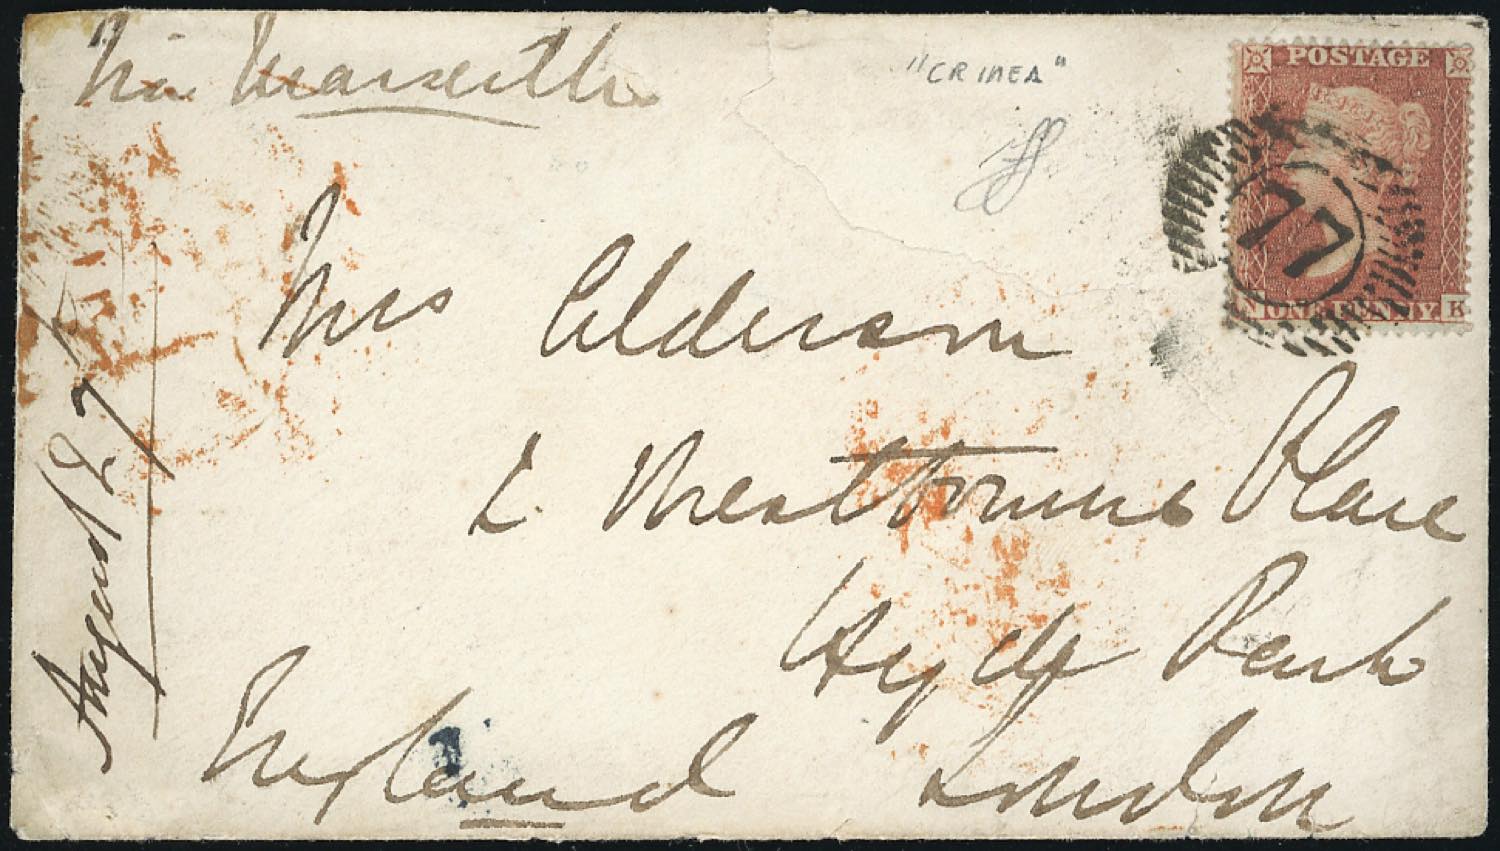 Via Marseille
"CRIMEA"
POSTAGE
77
ONE PENNY K
Mrs Alderson
2. Westbourne Place
Hyde Park
London
England
August 27